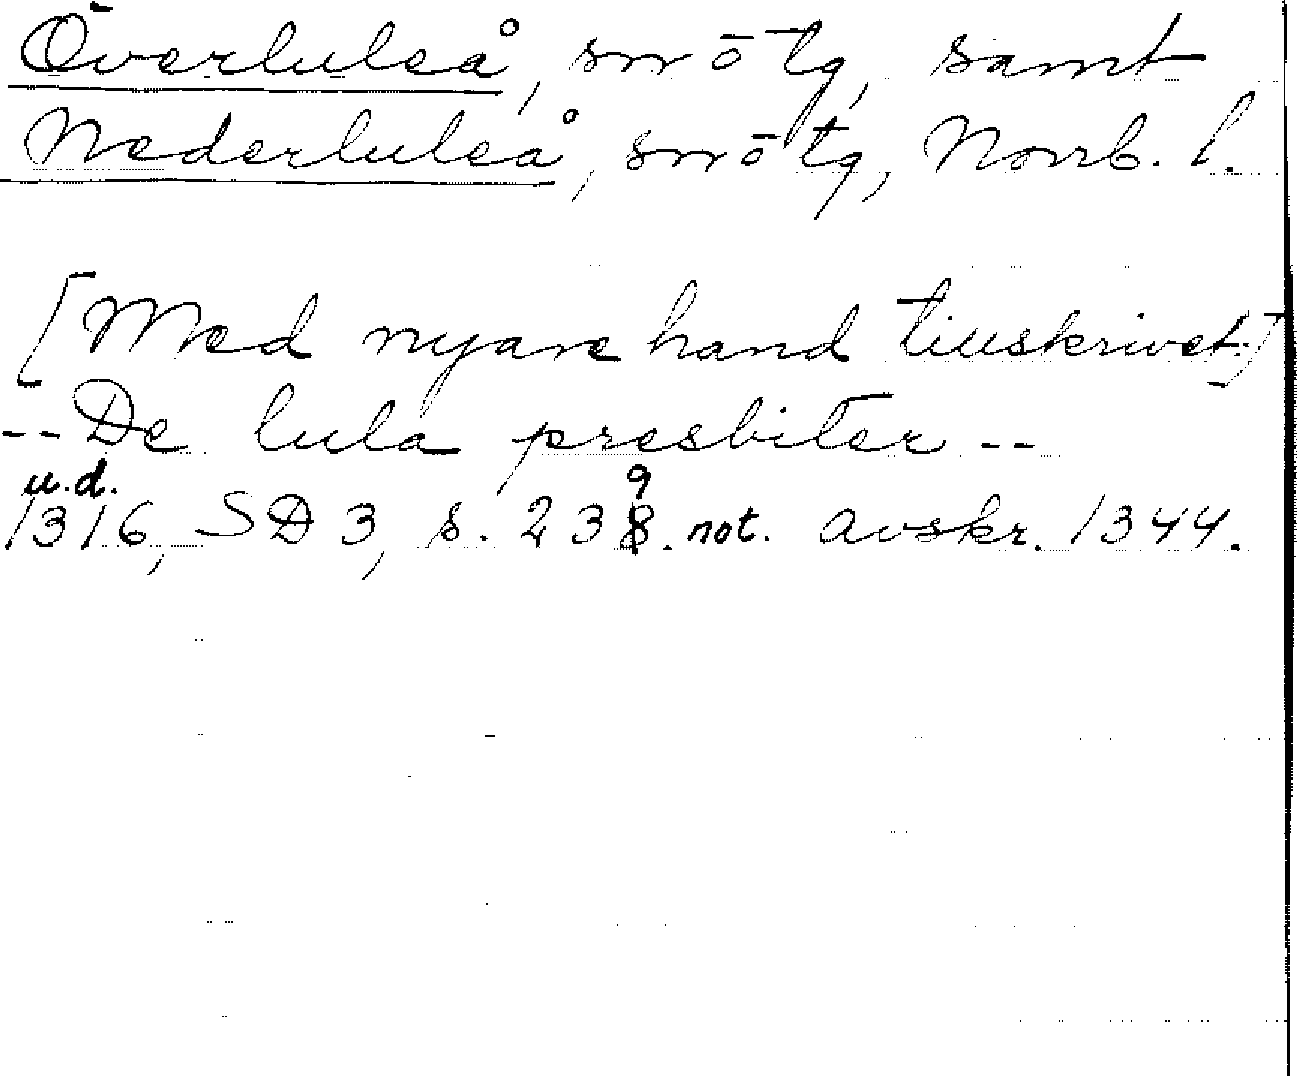 Överluleå, snrötg, samt
Nederluleå, snrötg, Norrb. l.
[Med nyare hand tillskrivet:]
-- De lula presbiter --
u.d.
1316, SD 3, s. 239. not. avskr. 1344.